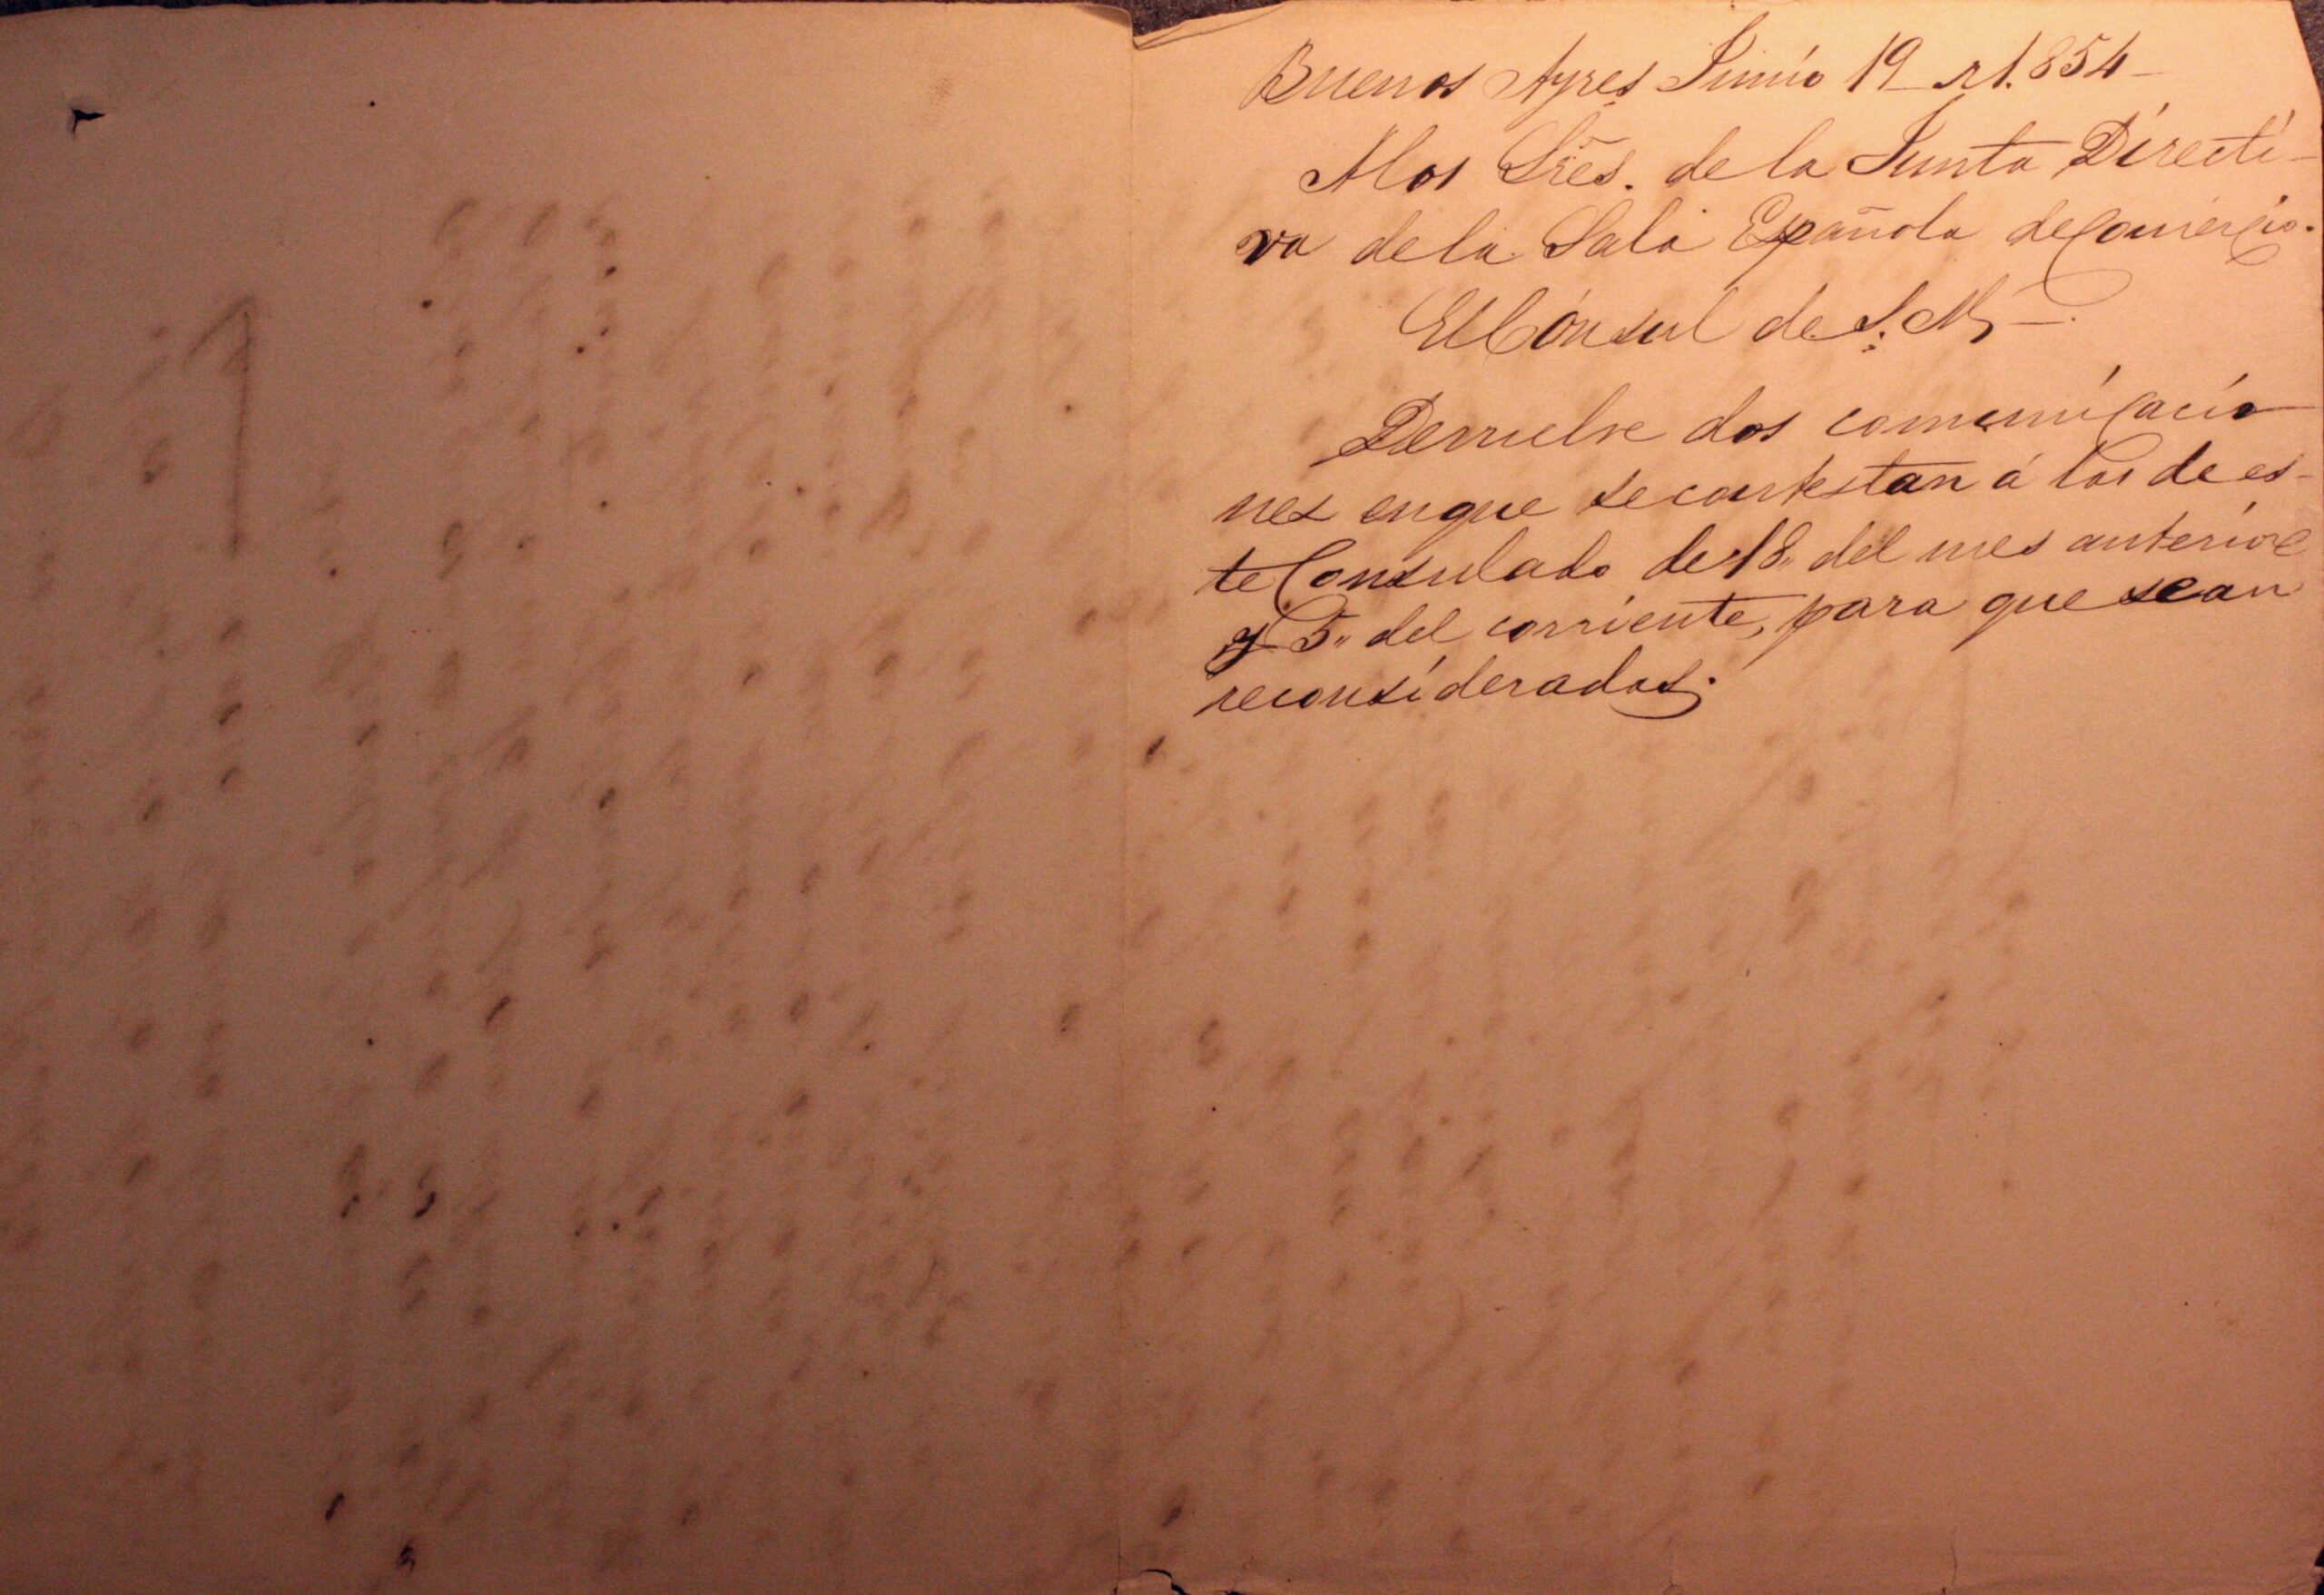 Buenos Ayres Junio 19 de 1.854
A los Sres. de la Junta Directi-
va de la Sala Española de Comercio.
El Cónsul de S. M.
Devuelve dos comunicacio
nes en que se contestan á las de es-
te Consulado de 18 del mes anterior
y 5 del corriente, para que sean
reconsideradas.